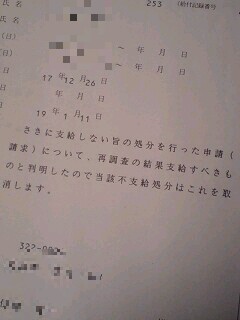 氏名 253 (給付記録番号
氏名
(日) ～ 年 月 日
日) ～ 年 月 日
日 17年12月26日
日 年 月 日
日 19年1月11日
さきに支給しない旨の処分を行った申請(
請求)について、再調査の結果支給すべきも
のと判明したので当該不支給処分はこれを取
消します。